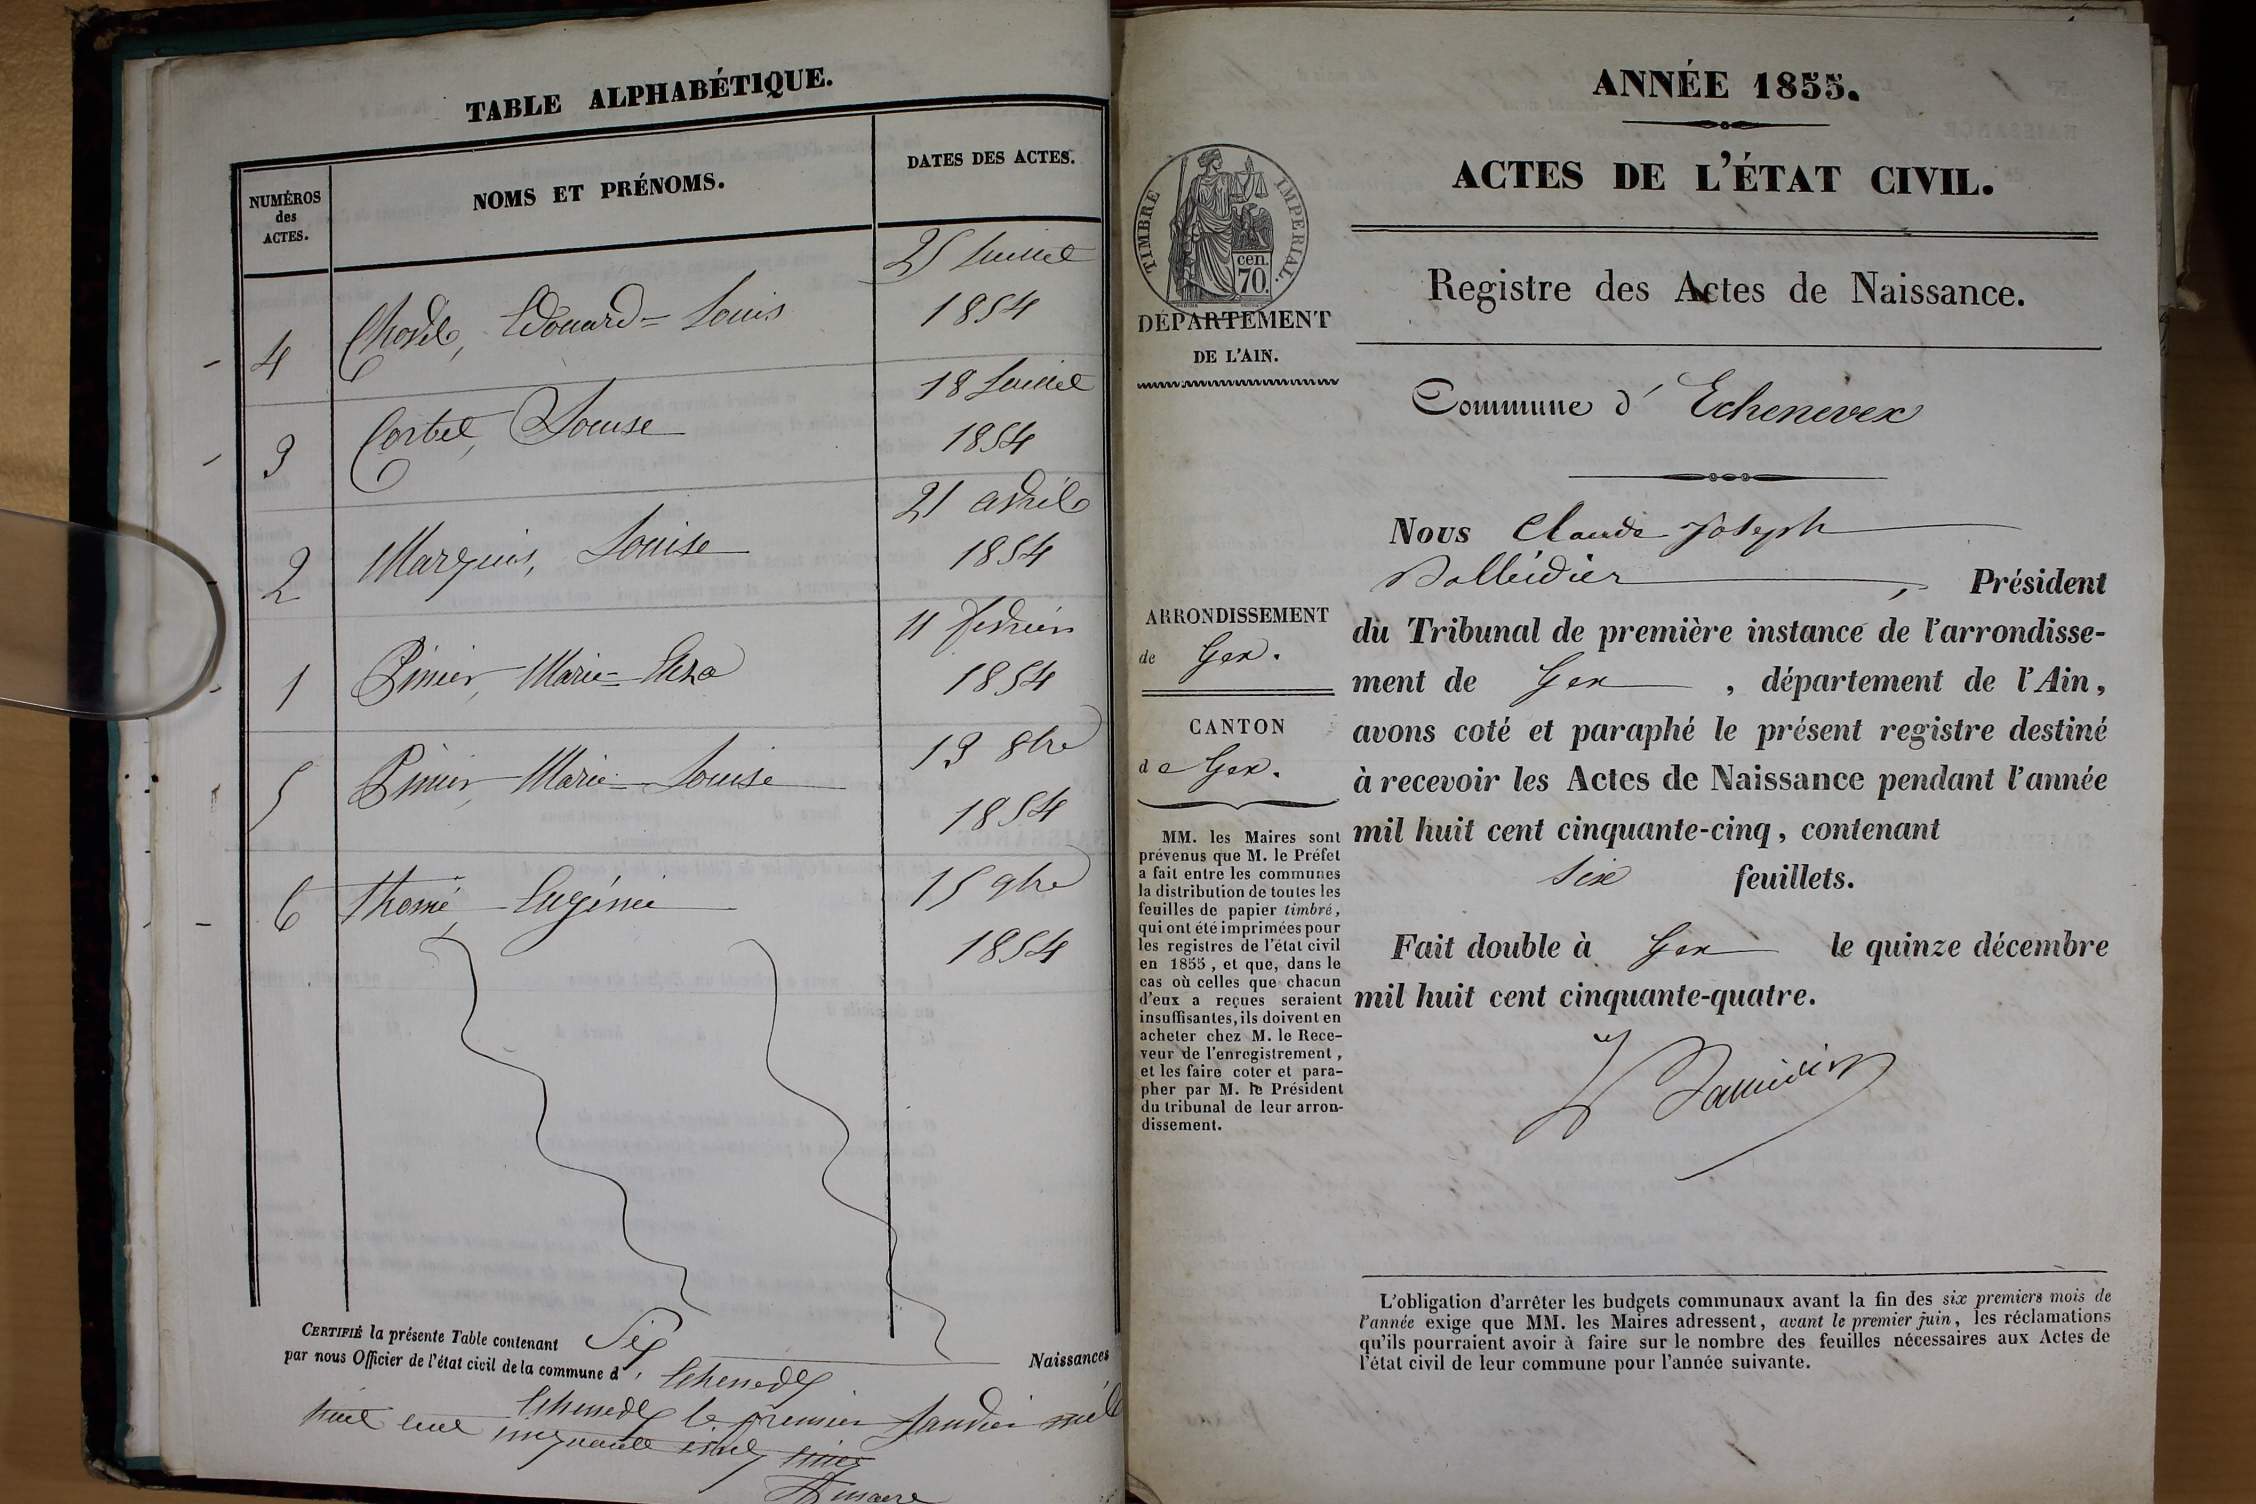 TABLE ALPHABÉTIQUE.
NUMÉROS
des
ACTES.
NOMS ET PRÉNOMS.
DATES DES ACTES.
4
Edouard=Louis
25 Juillet
1854
3
Corbet, Louise
18 Juillet
1854
2
Marquis, Louise
21 avril
1854
1
Pinier, Marie=
11 fevrier
1854
5
Pinier, Marie=Louise
13 8bre
1854
6
Thomé, Eugénie
15 9bre
1854
CERTIFIÉ la présente Table contenant Six Naissances
par nous Officier de l'état civil de la commune d' Echenevex
Echenevex le premier Janvier mil
huit cent cinquante cinq
ANNÉE 1855.
ACTES DE L'ÉTAT CIVIL.
TIMBRE IMPERIAL.
cen.
70.
DÉPARTEMENT
DE L'AIN.
Registre des Actes de Naissance.
Commune d' Echenevex
ARRONDISSEMENT
de Gex.
CANTON
de Gex.
MM. les Maires sont
prévenus que M. le Préfet
a fait entre les communes
la distribution de toutes les
feuilles de papier timbré,
qui ont été imprimées pour
les registres de l'état civil
en 1855, et que, dans le
cas où celles que chacun
d'eux a reçues seraient
insuffisantes, ils doivent en
acheter chez M. le Rece-
veur de l'enregistrement,
et les faire coter et para-
pher par M. le Président
du tribunal de leur arron-
dissement.
Nous Claude Joseph
, Président
du Tribunal de première instance de l'arrondisse-
ment de Gex , département de l'Ain,
avons coté et paraphé le présent registre destiné
à recevoir les Actes de Naissance pendant l'année
mil huit cent cinquante-cinq, contenant
six feuillets.
Fait double à Gex le quinze décembre
mil huit cent cinquante-quatre.
L'obligation d'arrêter les budgets communaux avant la fin des six premiers mois de
l'année exige que MM. les Maires adressent, avant le premier juin, les réclamations
qu'ils pourraient avoir à faire sur le nombre des feuilles nécessaires aux Actes de
l'état civil de leur commune pour l'année suivante.